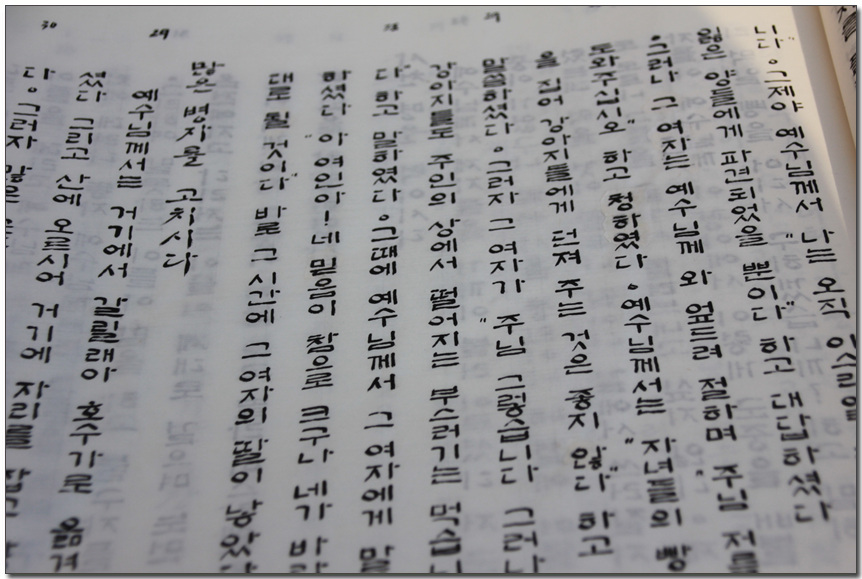 29
28
29
30
니다。그제야 예수님께서 "나는 오직
잃은 양들에게 파견되었을 뿐이다" 하고 대답하셨다
그러나 그 여자는 예수님께 와 엎드려 절하며 "주님 저를
도와주십시오" 하고 청하였다。예수님께서는 "자녀들의 빵
을 집어 강아지들에게 던져 주는 것은 좋지 않다" 하고
말씀하셨다。그러자 그 여자가 "주님 그렇습니다 그러나
강아지들도 주인의 상에서 떨어지는 부스러기는 먹습니
다 하고 말하였다。그때에 예수님께서 그 여자에게 말
하셨다 "아 여인아! 네 믿음이 참으로 크구나 네가 바
대로 될 것이다" 바로 그 시간에 그 여자의 딸이 나았다
많은 병자를 고치시다
예수님께서는 거기에서 갈릴래아 호수가로 옮겨
셨다 그리고 산에 오르시어 거기에 자리를
다。그러자 많은